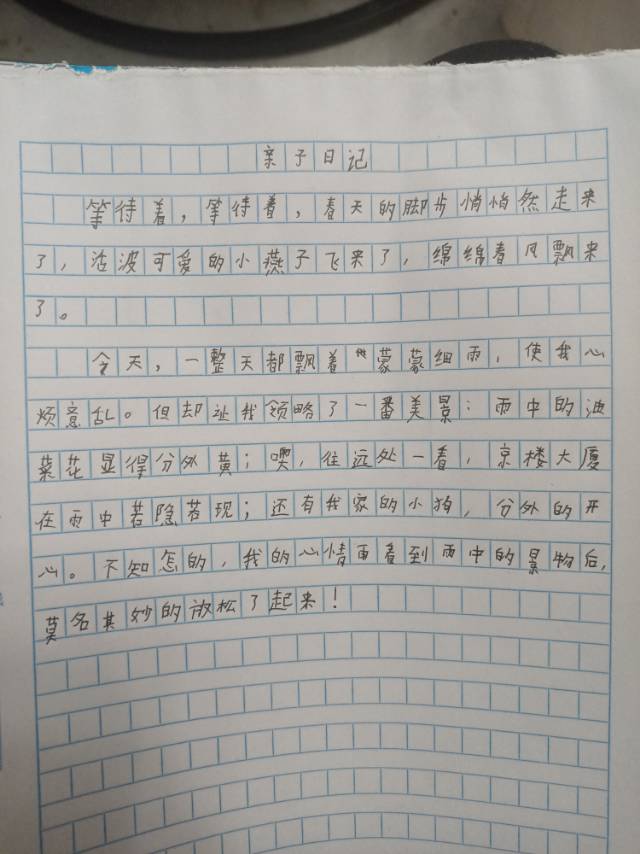 亲子日记
等待着，等待着，春天的脚步悄悄然走来
了，活泼可爱的小燕子飞来了，绵绵春风飘来
了。
今天，一整天都飘着蒙蒙细雨，使我心
烦意乱。但却让我领略了一番美景：雨中的油
菜花显得分外黄；噢，往远处一看，京楼大厦
在雨中若隐若现；还有我家的小狗，分外的开
心。不知怎的，我的心情再看到雨中的景物后，
莫名其妙的放松了起来！